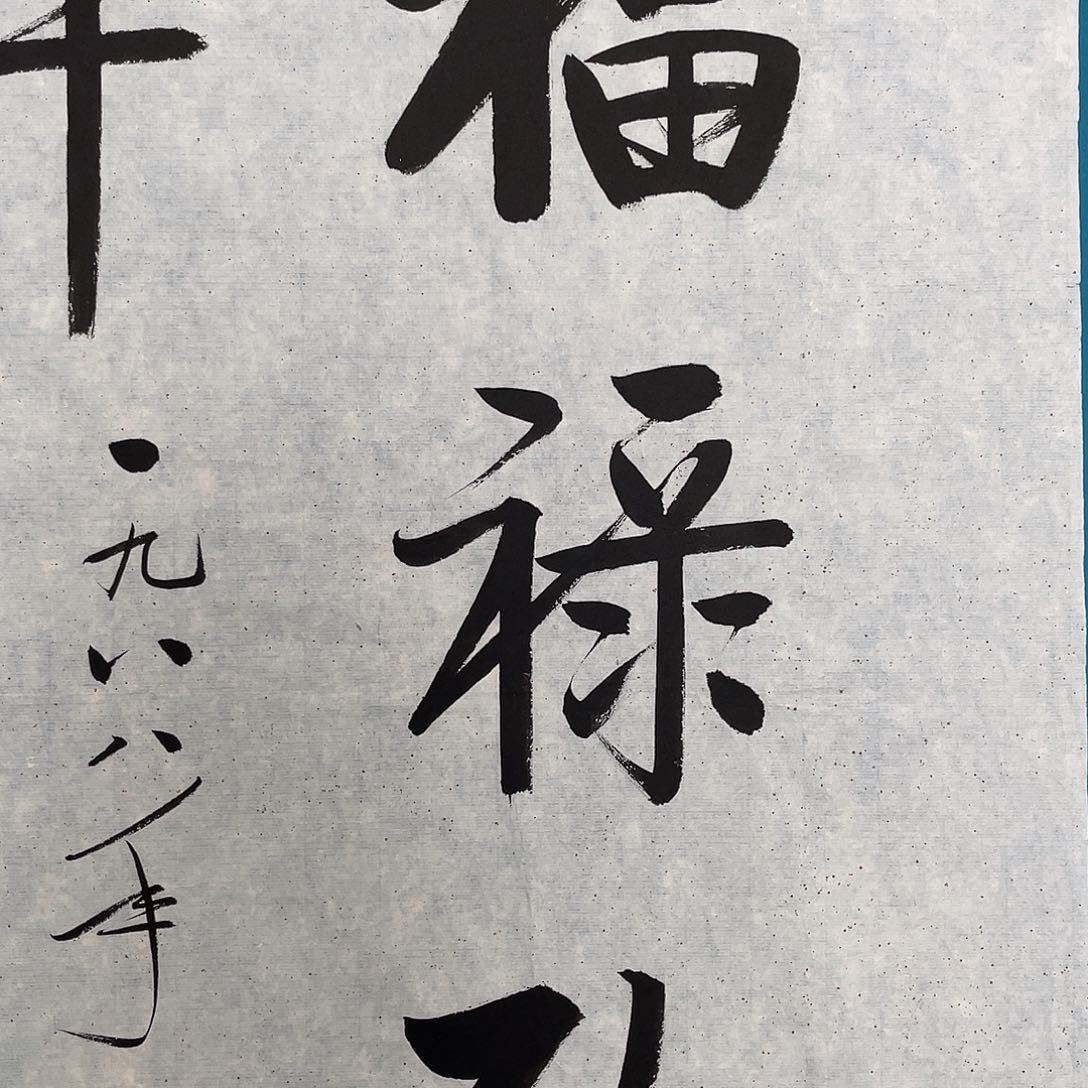 福禄
一九八八年